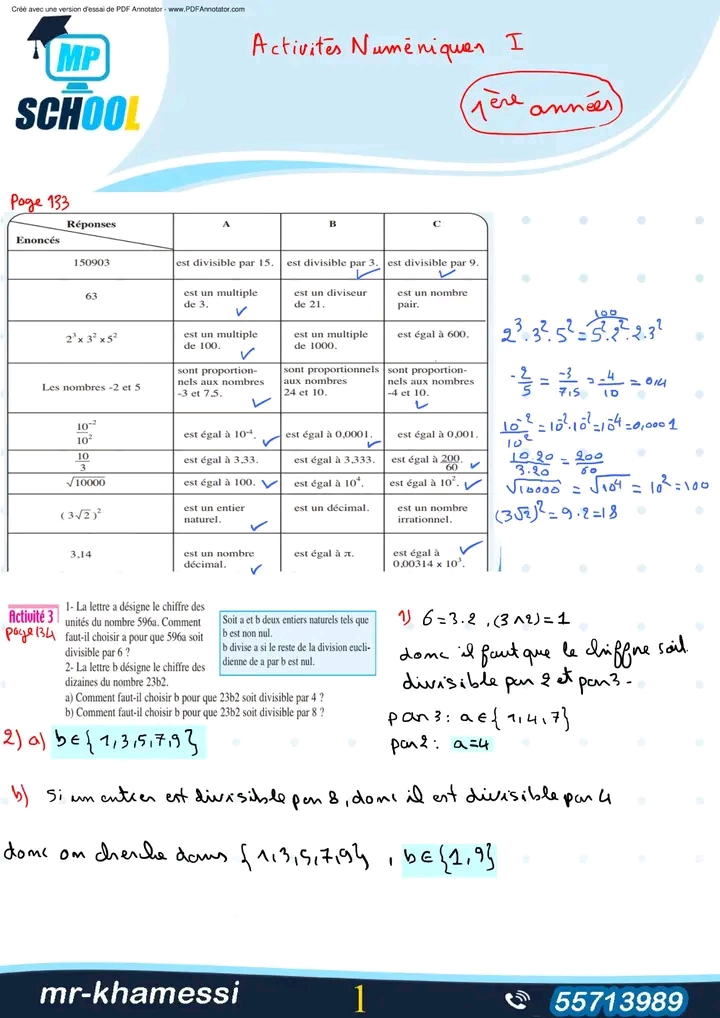 Créé avec une version d'essai de PDF Annotator - www.PDFAnnotator.com
Activités Numériques I
MP
SCHOOL
1ère années
Page 133
Réponses A B C
Enoncés
150903 est divisible par 15. est divisible par 3. est divisible par 9.
63 est un multiple de 3. est un diviseur de 21. est un nombre pair.
2³ x 3² x 5² est un multiple de 100. est un multiple de 1000. est égal à 600.
Les nombres -2 et 5 sont proportion-nels aux nombres -3 et 7,5. sont proportionnels aux nombres 24 et 10. sont proportion-nels aux nombres -4 et 10.
10⁻²/10² est égal à 10⁻⁴. est égal à 0,0001. est égal à 0,001.
10/3 est égal à 3,33. est égal à 3,333. est égal à 200/60.
√10000 est égal à 100. est égal à 10⁴. est égal à 10².
(3√2)² est un entier naturel. est un décimal. est un nombre irrationnel.
3,14 est un nombre décimal. est égal à π. est égal à 0,00314 x 10³.
100
2³.3².5² = 5².2².2.3²
-2/5 = -3/7,5 = -4/10 = 0,4
10⁻²/10² = 10⁻².10⁻² = 10⁻⁴ = 0,0001
10.20/3.20 = 200/60
√10000 = √10⁴ = 10² = 100
(3√2)² = 9.2 = 18
Activité 3
page 134
1- La lettre a désigne le chiffre des
unités du nombre 596a. Comment
faut-il choisir a pour que 596a soit
divisible par 6 ?
2- La lettre b désigne le chiffre des
dizaines du nombre 23b2.
a) Comment faut-il choisir b pour que 23b2 soit divisible par 4 ?
b) Comment faut-il choisir b pour que 23b2 soit divisible par 8 ?
Soit a et b deux entiers naturels tels que
b est non nul.
b divise a si le reste de la division eucli-
dienne de a par b est nul.
1) 6 = 3.2 , (3∧2) = 1
donc il faut que le chiffre soit
divisible par 2 et par 3 -
par 3 : a ∈ {1,4,7}
par 2 : a = 4
2) a) b ∈ {1,3,5,7,9}
b) Si un entier est divisible par 8, donc il est divisible par 4
donc on cherche dans {1,3,5,7,9} , b ∈ {1,9}
mr-khamessi
1
55713989